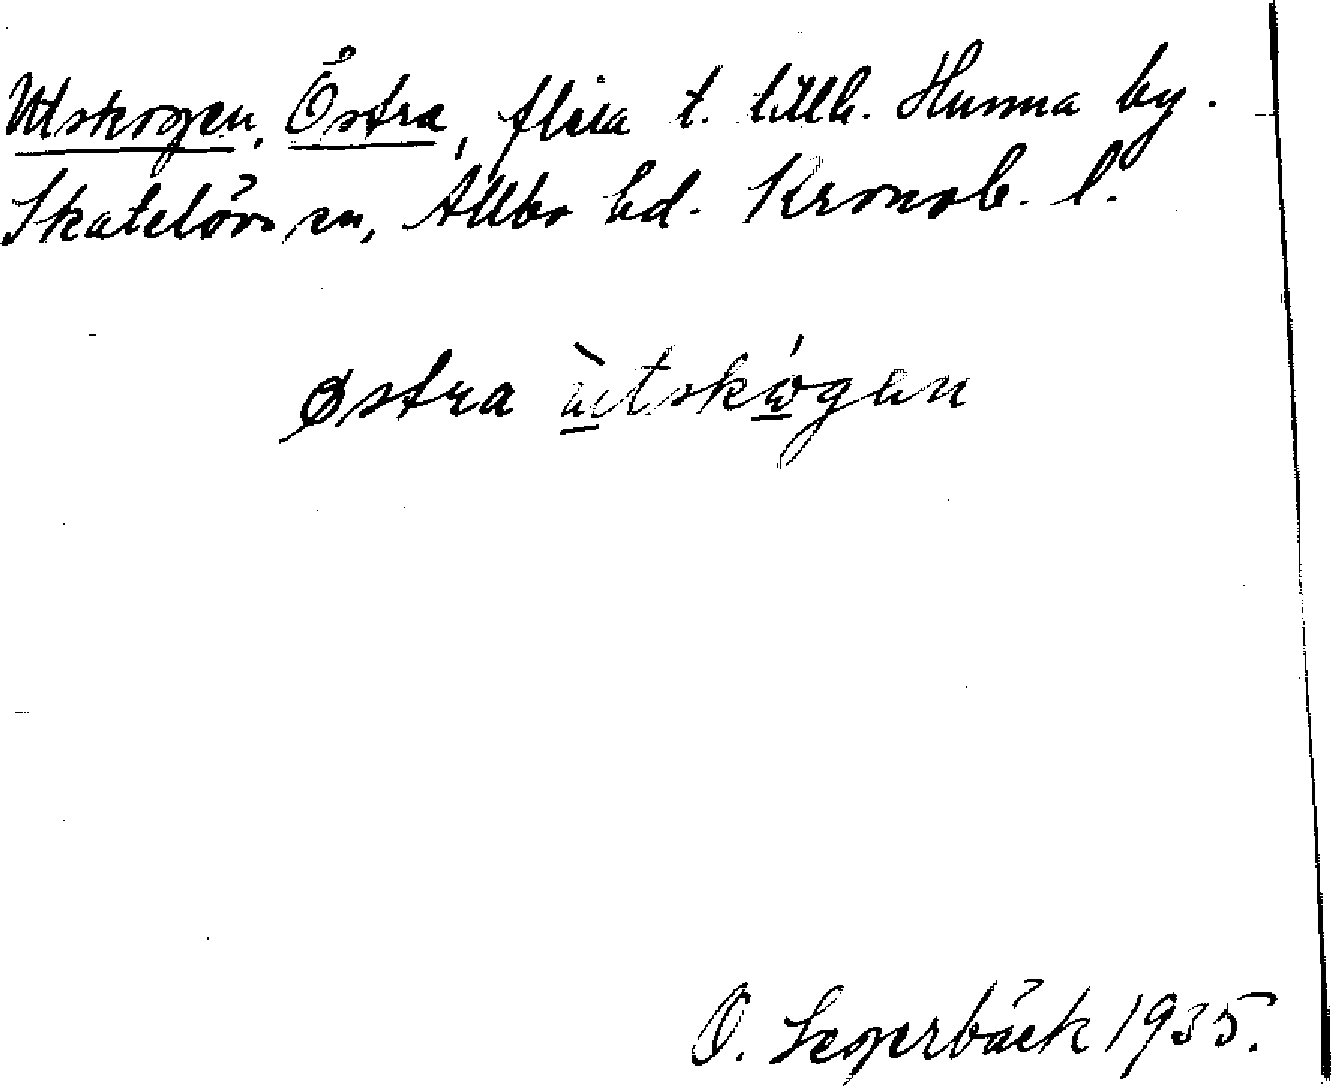 Utskogen, Östra, flera t. tillh. Hunna by.
Skatelövs sn, Allbo hd. Kronob. l.
østra ùtskógen
O. Segerbäck 1935.